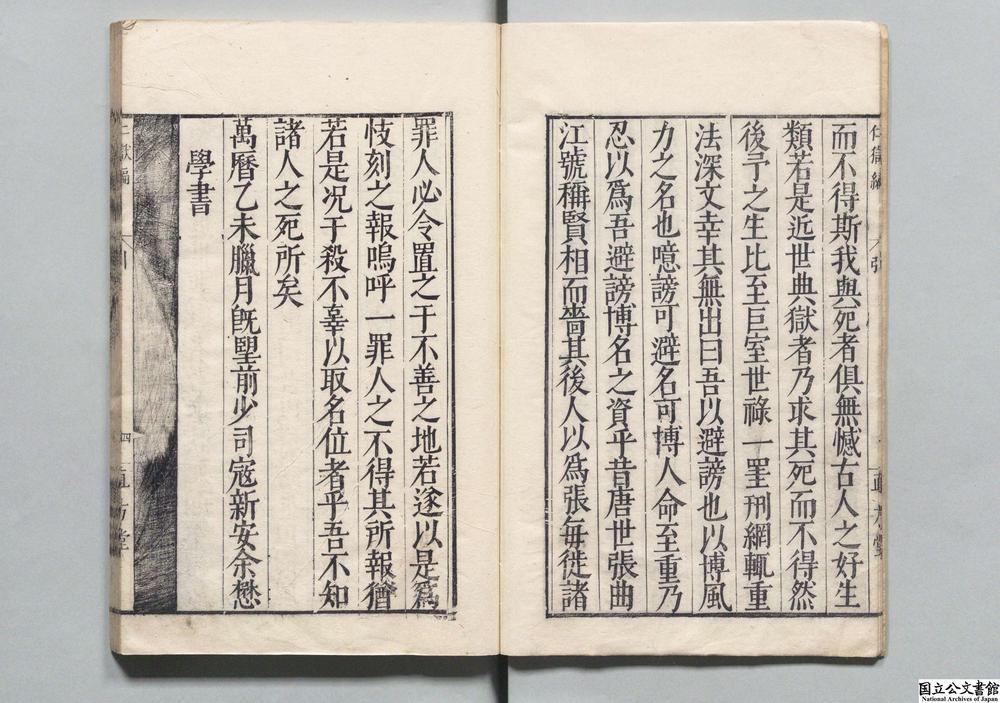 而不得斯我與死者俱無憾古人之好生
類若是近世典獄者乃求其死而不得然
後予之生比至巨室世祿一罣刑網輒重
法深文幸其無出曰吾以避謗也以博風
力之名也噫謗可避名可博人命至重乃
忍以爲吾避謗博名之資乎昔唐世張曲
江號稱賢相而嗇其後人以爲張每徙諸
罪人必令置之于不善之地若遂以是爲
忮刻之報嗚呼一罪人之不得其所報猶
若是况于殺不辜以取名位者乎吾不知
諸人之死所矣
萬曆乙未臘月旣朢前少司寇新安余懋
學書
四
直方堂
国立公文書館
National Archives of Japan